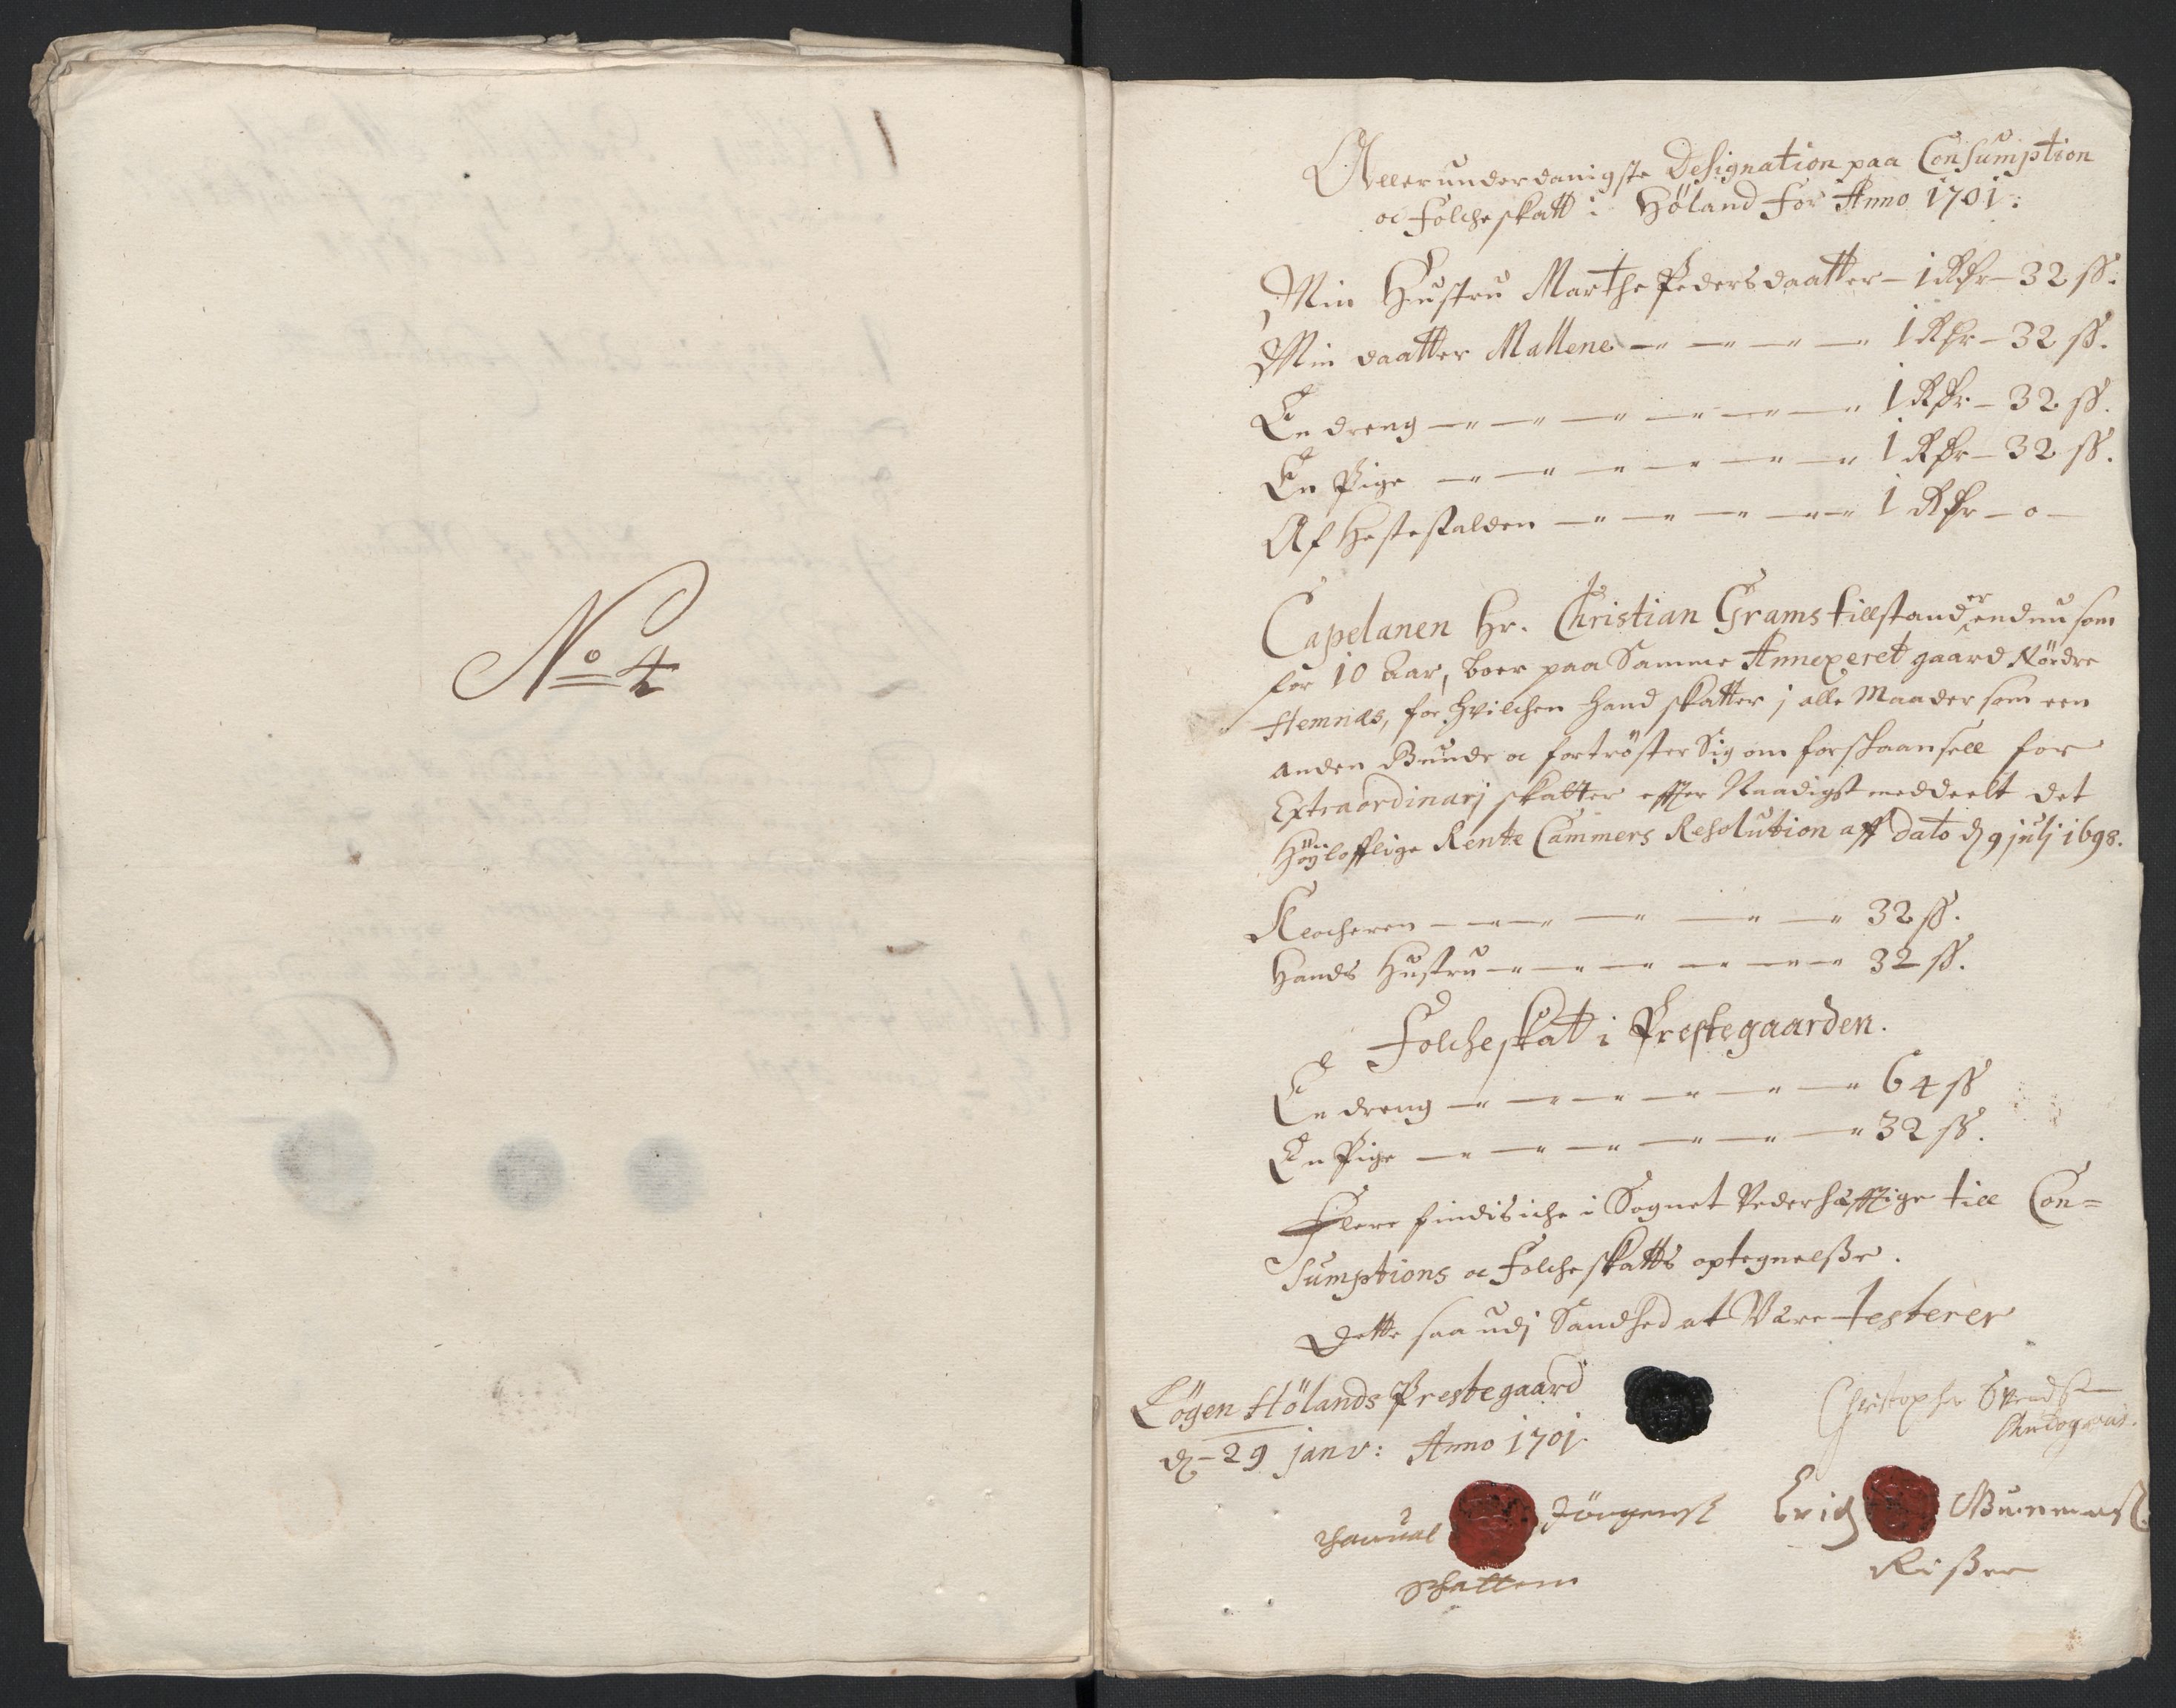 No 4
Allerunderdanigste Designation paa Consumption
oc Folcheskatt i Höland for Anno 1701:
Min Hustru Marthe Pedersdaatter – 1 Rdr – 32 ss.
Min daatter Mallene – 1 Rdr – 32 ss.
En dreng – 1 Rdr – 32 ss.
En Pige – 1 Rdr – 32 ss.
Af Hestestalden – 1 Rdr – o –
Capelanen Hr. Christian Grams tillstand er endnu som
for 10 Aar, boer paa Samme Annexeret gaard Nördre
Hemnæs, for hvilchen hand skatter j alle Maader som een
anden Bunde oc fortröster Sig om forskaansell for
Extraordinarj skatter effter Naadigst meddeelt det
Höyloflige Rente Cammers Resolution aff dato d 9 julj 1698.
Klocheren – 32 ss.
Hands Hustru – 32 ss.
Folcheskat i Prestegaarden.
En dreng – 64 ss
En Pige – 32 ss.
Flere findis iche i Sognet Vederhæfftige till Con=
sumptions oc Folcheskatts optegnelsse.
Dette saa udj Sandhed at Være testerer
Lögen Hölands Prestegaard
d – 29 janv: Anno 1701.
Christopher Svends
Erich Gunners
Jörgens